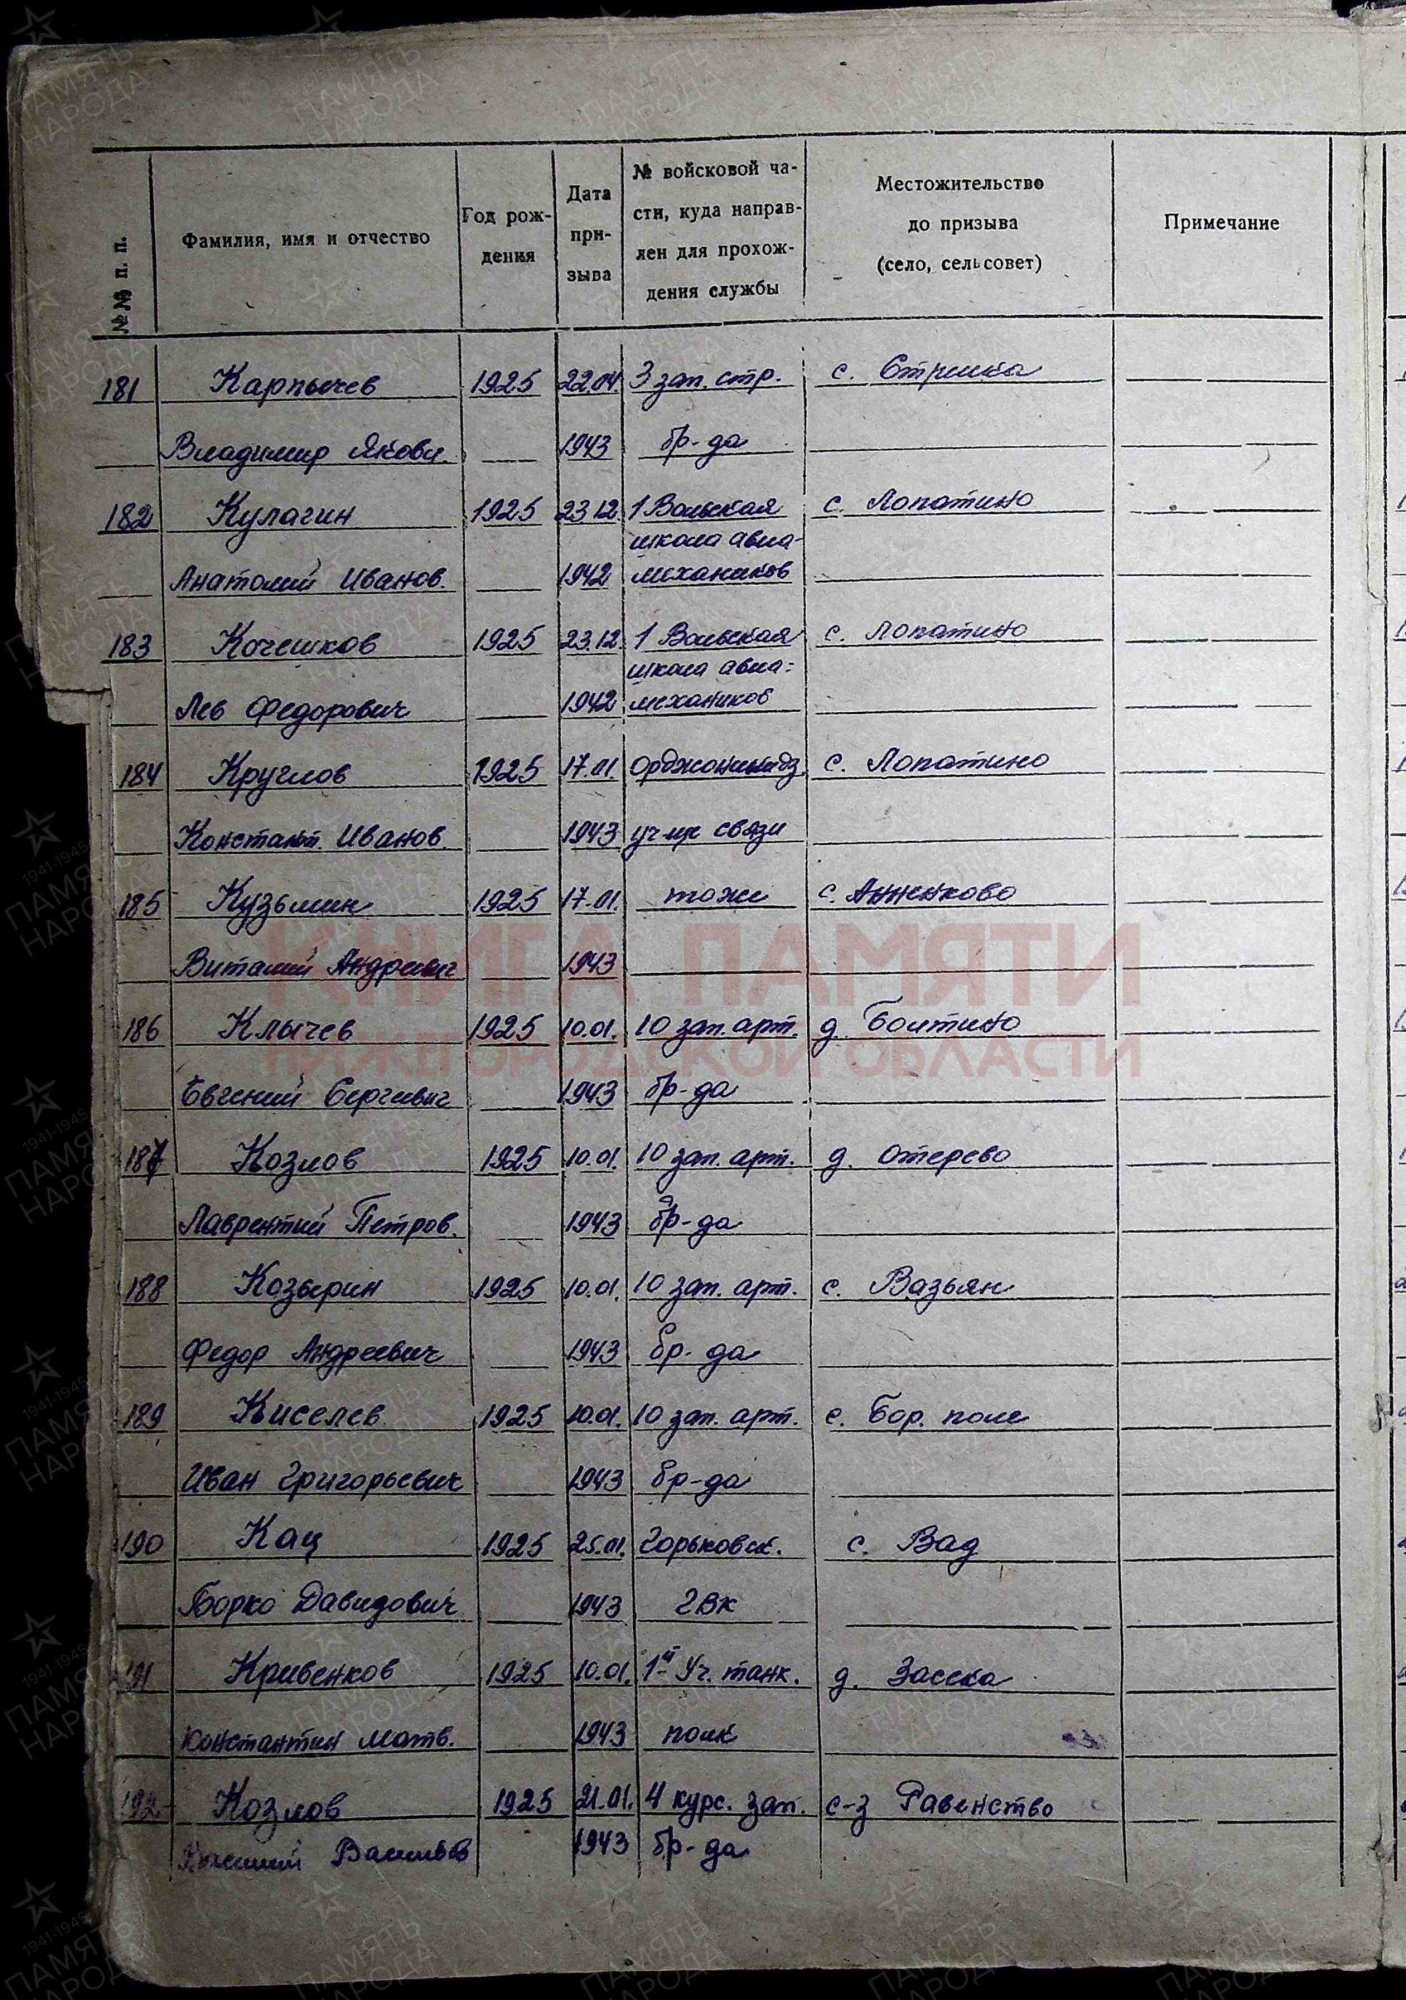 №№ п. п.
Фамилия, имя и отчество
Год рож-
дения
Дата
при-
зыва
№ войсковой ча-
сти, куда направ-
лен для прохож-
дения службы
Местожительство
до призыва
(село, сельсовет)
Примечание
181 Карпычев 1925 22.04. 3 зап. стр. с. Стрелка
Владимир Яковл. 1943 бр-да
182 Кулагин 1925 23.12. 1 Вольская с. Лопатино
школа авиа-
Анатолий Иванов. 1942 механиков
183 Кочешков 1925 23.12. 1 Вольская с. Лопатино
школа авиа-
Лев Федорович 1942 механиков
184 Круглов 1925 17.01. Орджоникидз. с. Лопатино
Констант. Иванов. 1943 уч-ще связи
185 Кузьмин 1925 17.01. тоже с. Анненково
Виталий Андреевич 1943
186 Клычев 1925 10.01. 10 зап. арт. д. Болтино
Евгений Сергеевич 1943 бр-да
187 Козлов 1925 10.01. 10 зап. арт. д. Отерево
Лаврентий Петров. 1943 бр-да
188 Козырин 1925 10.01. 10 зап. арт. с. Вазьян
Федор Андреевич 1943 бр-да
189 Киселев 1925 10.01. 10 зап. арт. с. Бор. поле
Иван Григорьевич 1943 бр-да
190 Кац 1925 25.01. Горьковск. с. Вад
Борко Давидович 1943 ГВК
191 Кривенков 1925 10.01. 1й Уч. танк. д. Засека
Константин Матв. 1943 полк
192 Козлов 1925 21.01. 4 курс. зап. с-з Равенство
Васильев 1943 бр-да
КНИГА ПАМЯТИ
НИЖЕГОРОДСКОЙ ОБЛАСТИ
1941-1945
ПАМЯТЬ
НАРОДА